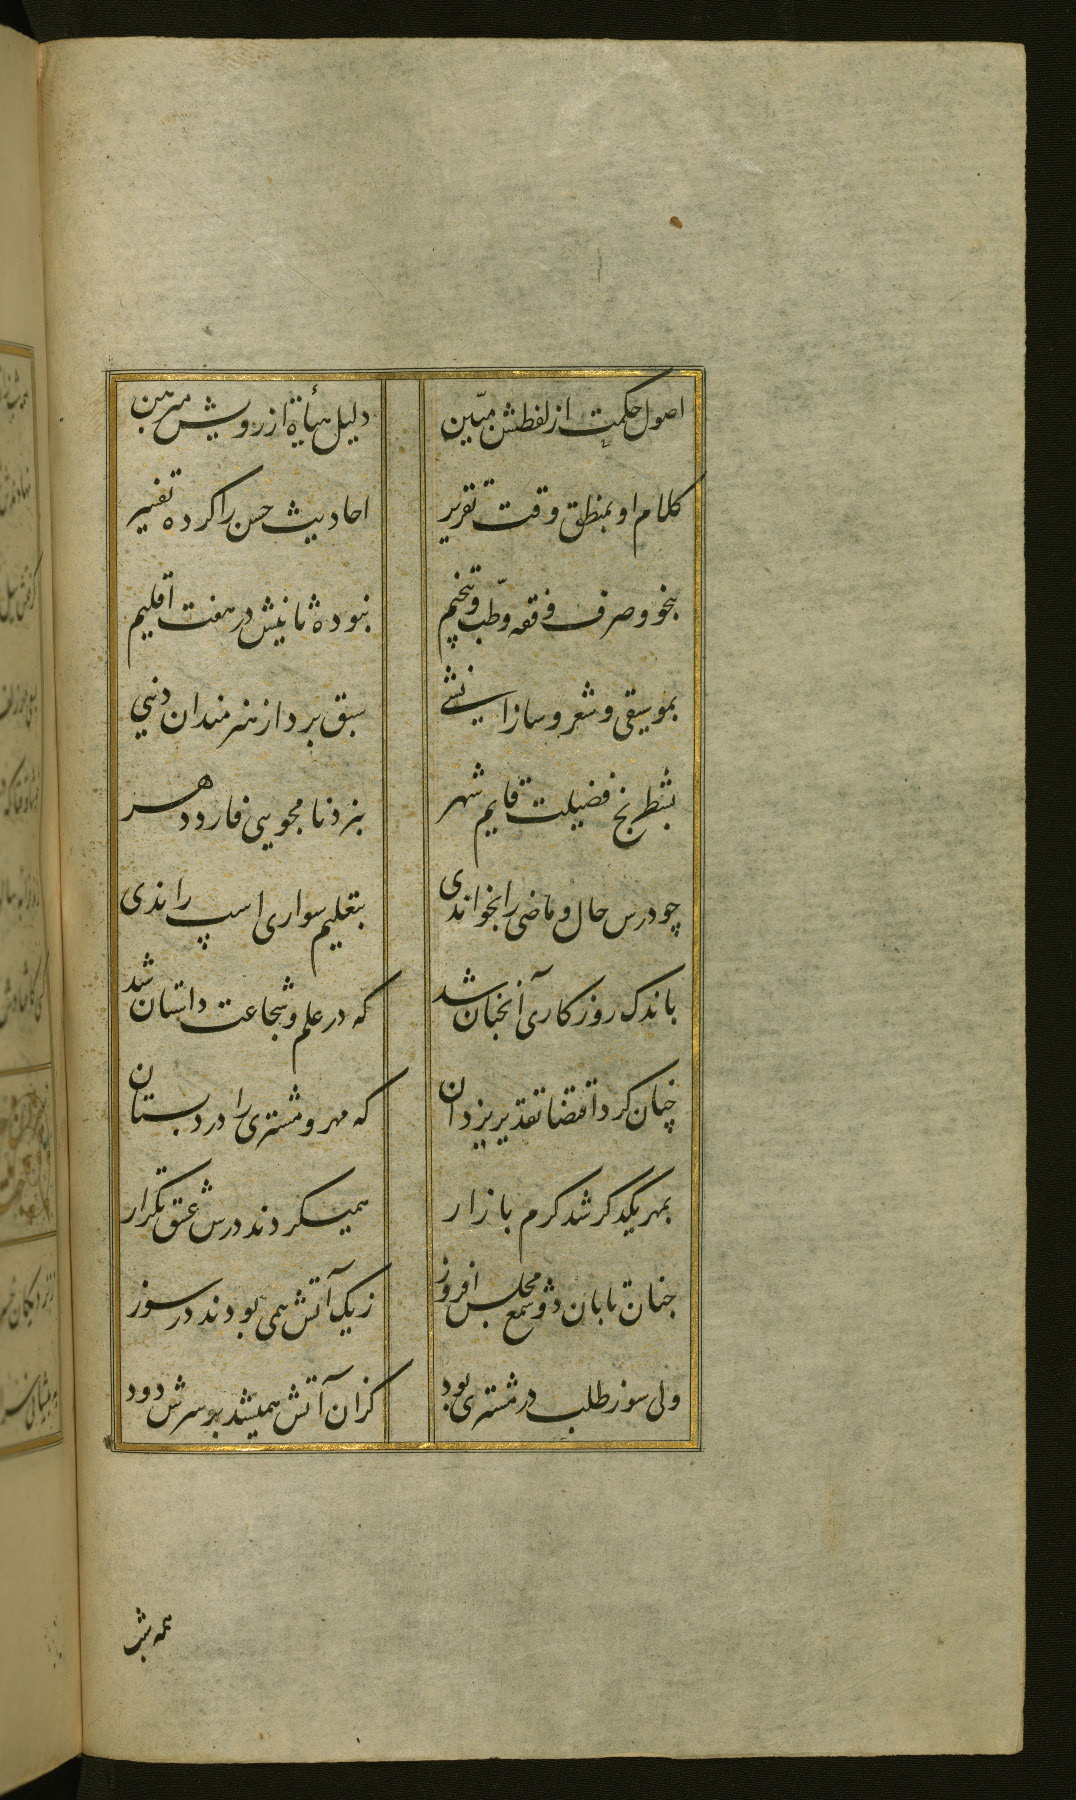 اصول حکمت از لفظش مبیّن
دلیل هیأة از رویش مبرهن
کلام او بمنطق وقت تقریر
احادیث حسن را کرده تفسیر
بنحو و صرف و فقه و طبّ و تنجیم
نبوده ثانیش در هفت اقلیم
بموسیقی و شعر و ساز انشی
سبق برد از هنرمندان دنیی
بشطرنج فضیلت قایم شهر
بنرد نامجویی فارد دهر
چو درس حال و ماضی را بخواندی
بتعلیم سواری اسپ راندی
باندک روزکاری آنچنان شد
که در علم و شجاعت داستان شد
چنان کرد اقتضا تقدیر یزدان
که مهر و مشتری را در دبستان
بمهر یکدگر شد کرم بازار
همیکردند درس عشق تکرار
جنان تابان دو شمع مجلس افروز
زیک آتش همی بودند در سوز
ولی سوز طلب در مشتری بود
کزان آتش همیشد بر سرش دود
همه شب